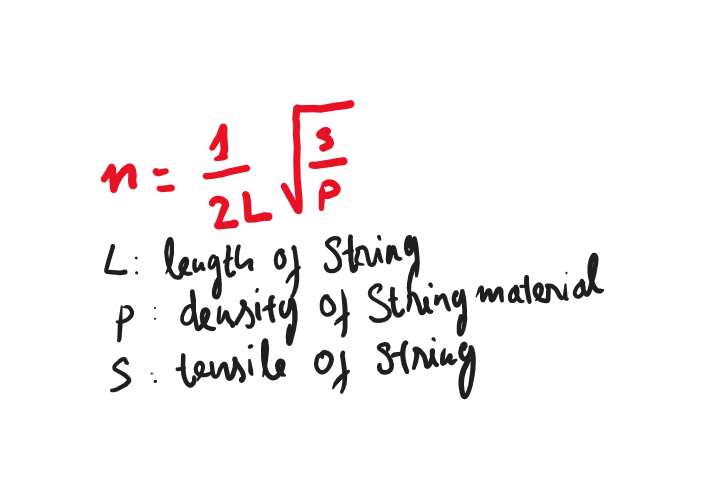 n = 1/2L √s/p
L: length of String
p: density of String material
S: tensile of string